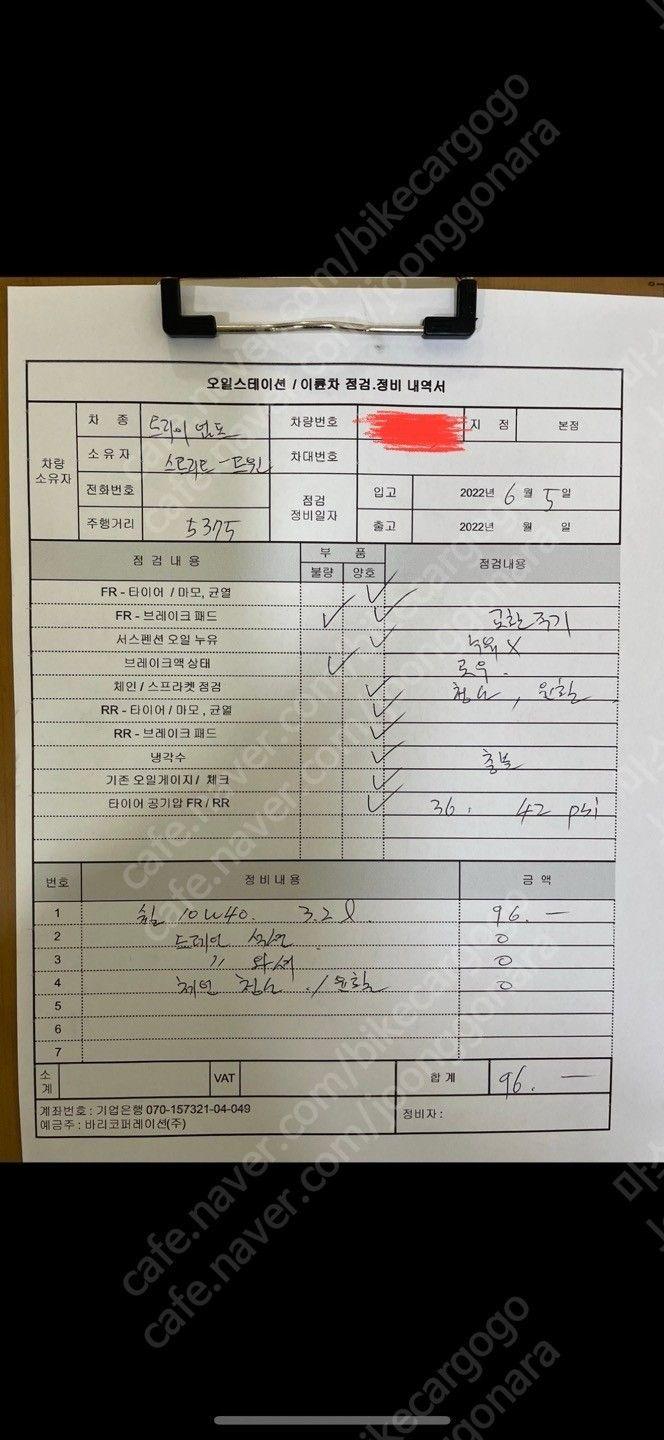 cafe.naver.com/bikecargogo
cafe.naver.com/joonggonara
오일스테이션 / 이륜차 점검.정비 내역서
차량 소유자
차 종 트라이엄프 차량번호 지 점 본점
소유자 스트리트-트윈 차대번호
전화번호 점검 정비일자 입고 2022년 6월 5일
주행거리 5375 출고 2022년 월 일
점 검 내 용 부 품 점검내용
불량 양호
FR - 타이어 / 마모, 균열 ✓
FR - 브레이크 패드 ✓ ✓ 교환주기
서스펜션 오일 누유 ✓ 누유 X
브레이크액 상태 ✓ 로우.
체인 / 스프라켓 점검 ✓ 청소, 윤활
RR - 타이어 / 마모 , 균열 ✓
RR - 브레이크 패드 ✓
냉각수 ✓ 충분
기존 오일게이지 / 체크 ✓
타이어 공기압 FR / RR ✓ 36. 42 psi
번호 정비내용 금 액
1 10W40. 3.2ℓ. 96.—
2 드레인 0
3 〃 와셔 0
4 체인 청소 / 윤활 0
5
6
7
소계 VAT 합 계 96.—
계좌번호 : 기업은행 070-157321-04-049
예금주 : 바리코퍼레이션(주) 정비자 :
cafe.naver.com/bikecargogo
cafe.naver.com/joonggonara